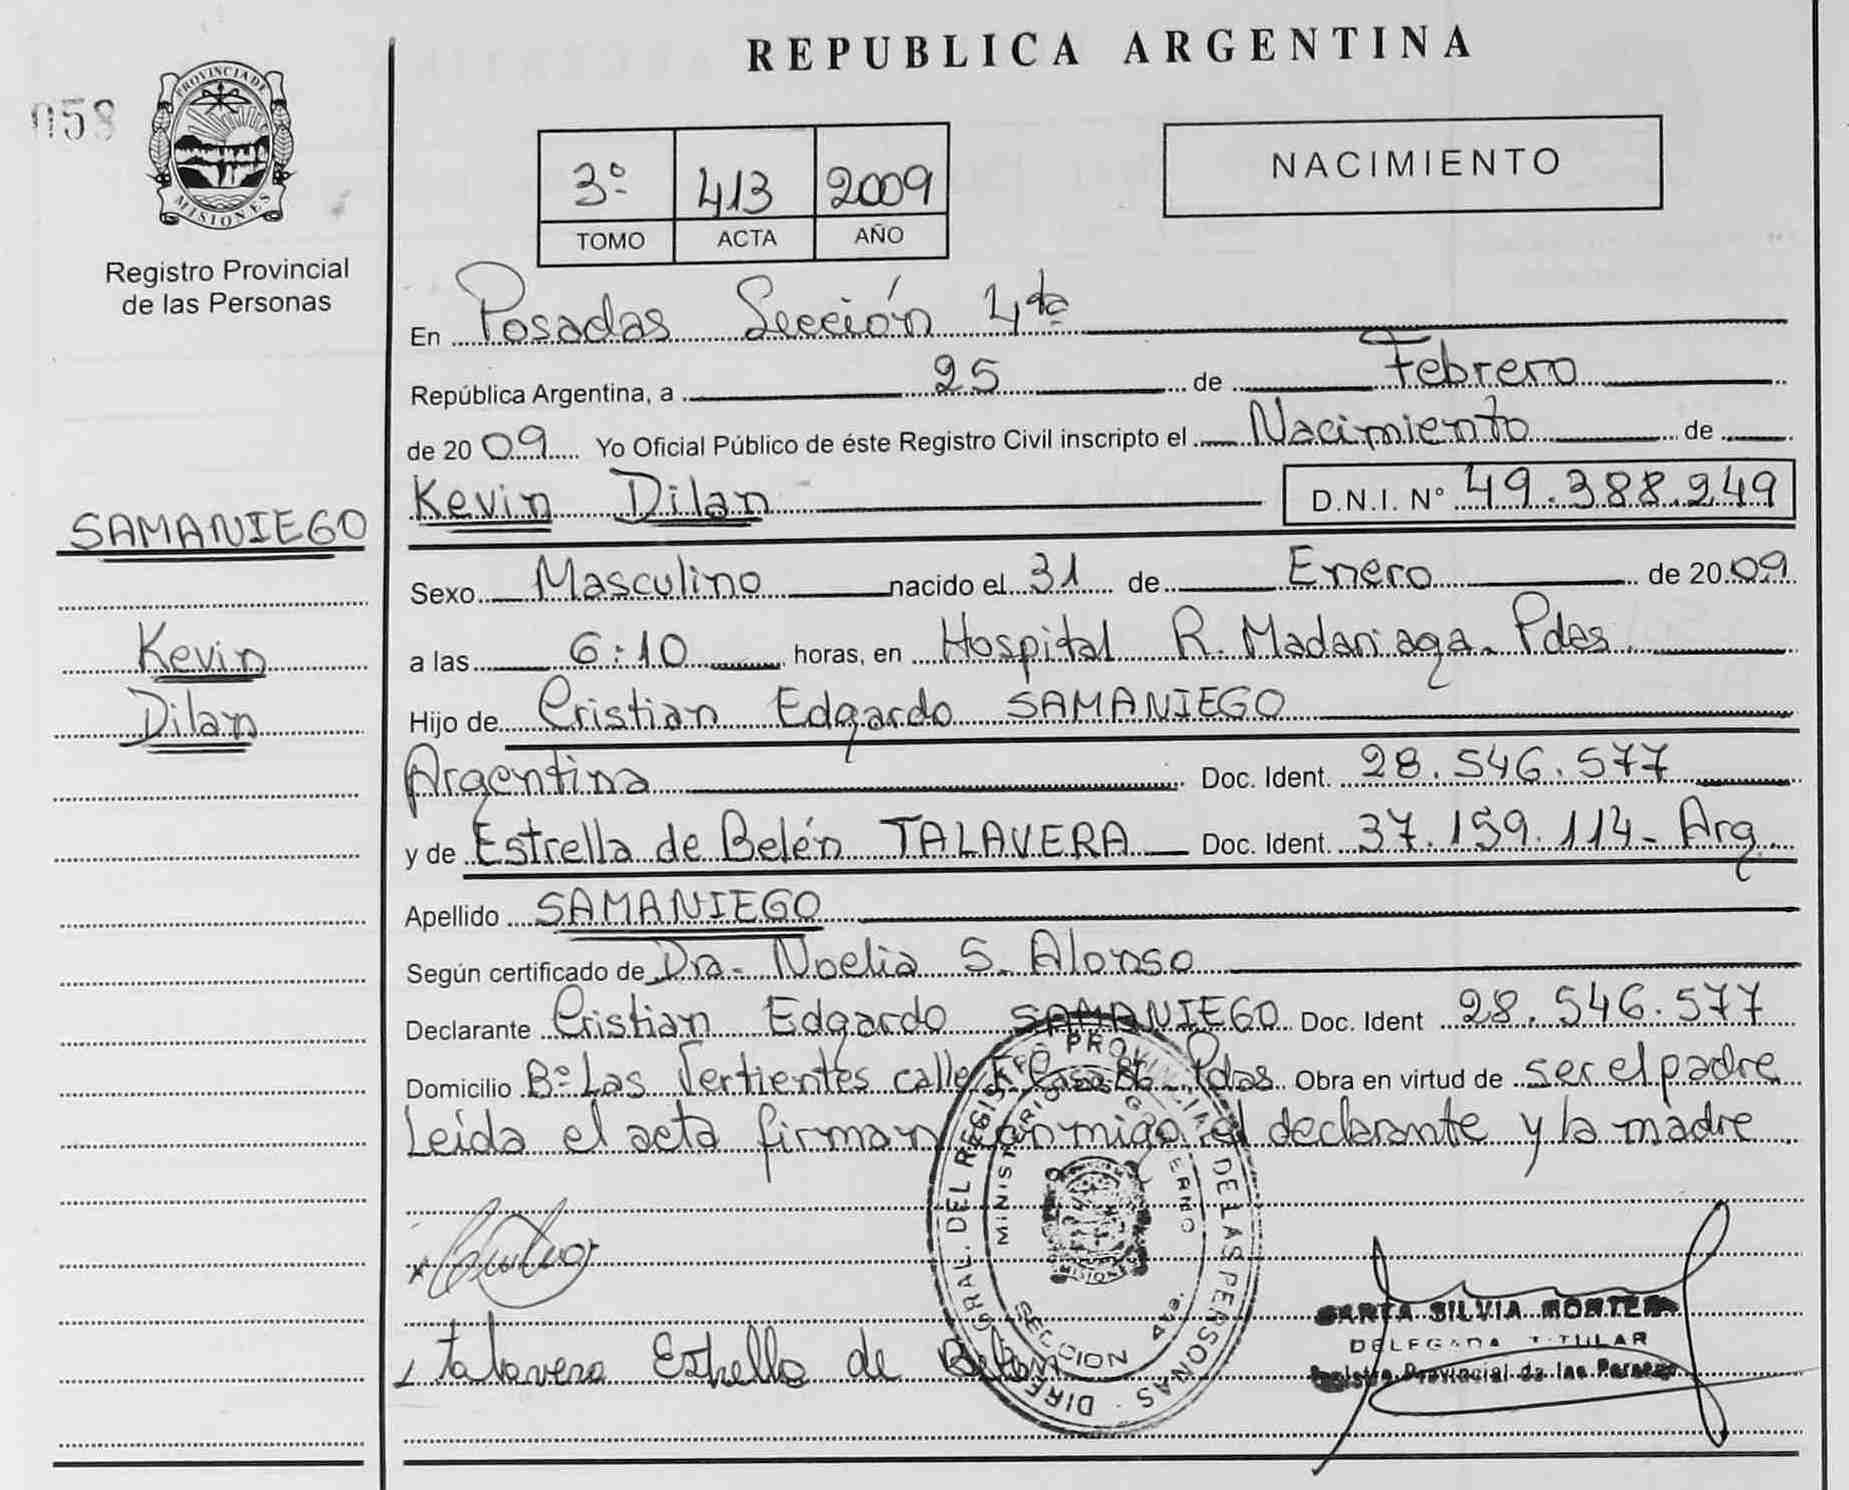 REPUBLICA ARGENTINA
058
PROVINCIA DE
MISIONES
Registro Provincial
de las Personas
3º 413 2009
TOMO ACTA AÑO
NACIMIENTO
En Posadas Sección 4ta
República Argentina, a 25 de Febrero
de 2009 Yo Oficial Público de éste Registro Civil inscripto el Nacimiento de
Kevin Dilan D.N.I. Nº 49.388.249
SAMANIEGO
Kevin
Dilan
Sexo Masculino nacido el 31 de Enero de 2009
a las 6:10 horas, en Hospital R. Madariaga - Pdas
Hijo de Cristian Edgardo SAMANIEGO
Argentina Doc. Ident. 28.546.577
y de Estrella de Belén TALAVERA Doc. Ident. 37.159.114 - Arg.
Apellido SAMANIEGO
Según certificado de Dra. Noelia S. Alonso
Declarante Cristian Edgardo SAMANIEGO Doc. Ident 28.546.577
Domicilio Bº Las Vertientes calle Pdas Obra en virtud de ser el padre
Leída el acta firman conmigo el declarante y la madre
DIREC. GRAL. DEL REGISTRO PROVINCIAL DE LAS PERSONAS
MINISTERIO DE GOBIERNO
MISIONES
SECCION 4ta.
Talavera Estrella de Belen
SILVIA
DELEGADA TITULAR
Registro Provincial de las Personas